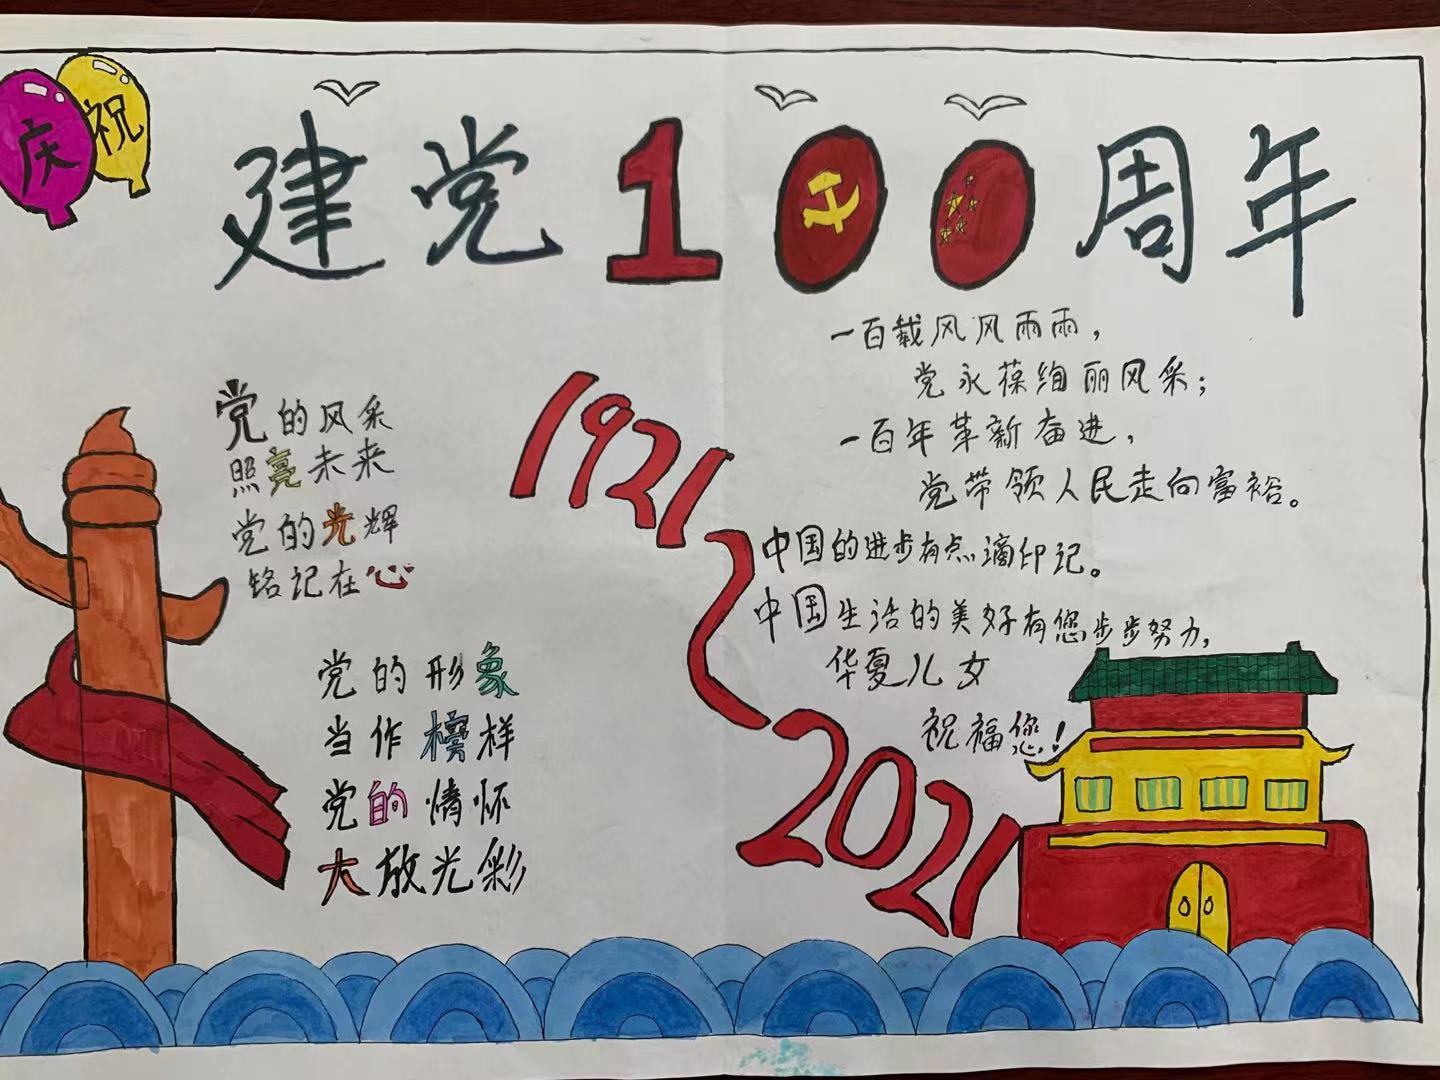 庆祝
建党100周年
一百载风风雨雨，
党永葆绚丽风采；
一百年革新奋进，
党带领人民走向富裕。
中国的进步有点滴印记。
中国生活的美好有您步步努力，
华夏儿女
祝福您！
1921～2021
党的风采
照亮未来
党的光辉
铭记在心
党的形象
当作榜样
党的情怀
大放光彩